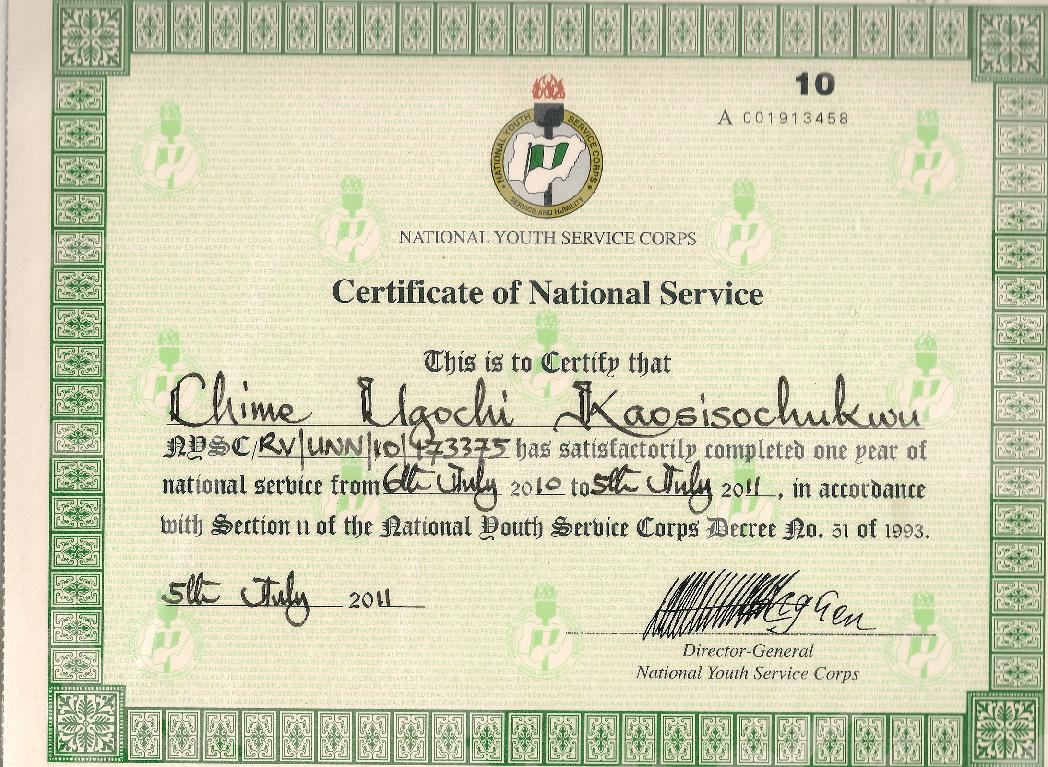 10
A 001913458
NATIONAL YOUTH SERVICE CORPS
SERVICE AND HUMILITY
NATIONAL YOUTH SERVICE CORPS
Certificate of National Service
This is to Certify that
Chime Ugochi Kaosisochukwu
NYSC/RV/UNN/10/473375 has satisfactorily completed one year of
national service from 6th July 2010 to 5th July 2011, in accordance
with Section 11 of the National Youth Service Corps Decree No. 51 of 1993.
5th July 2011
Director-General
National Youth Service Corps